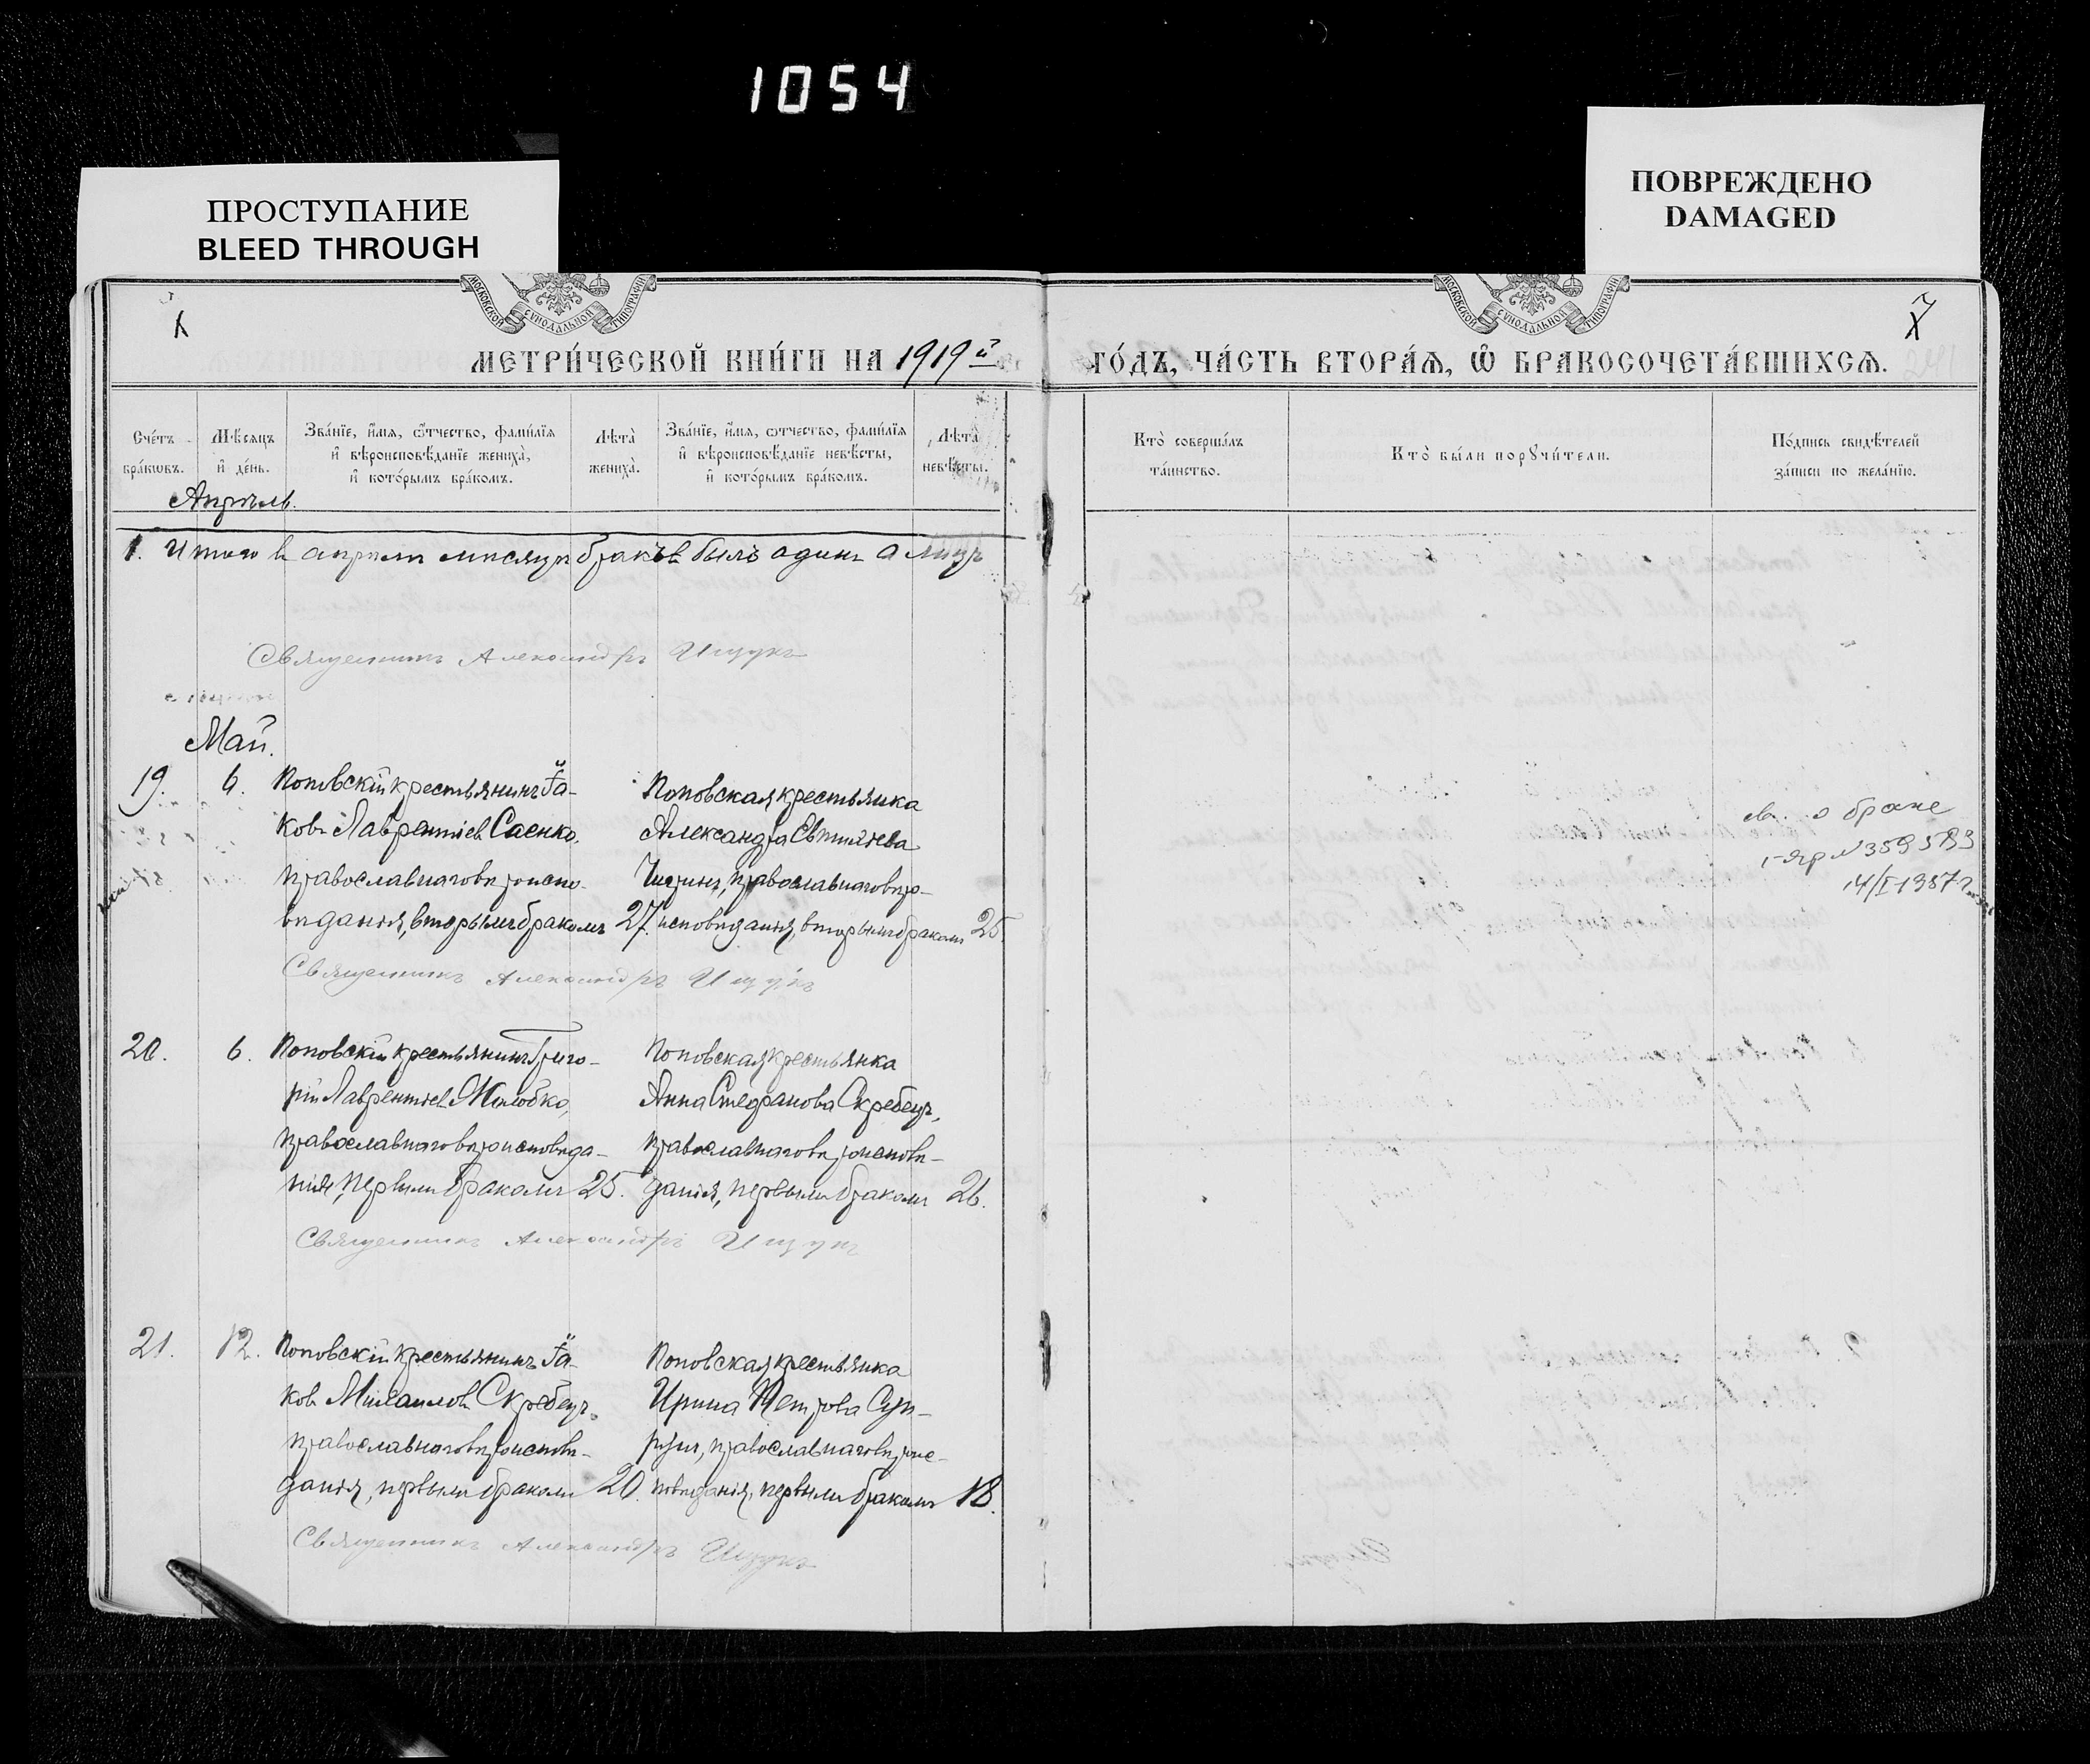 1054
ПРОСТУПАНИЕ
BLEED THROUGH
ПОВРЕЖДЕНО
DAMAGED
МОСКОВСКОЙ СУНОДАЛЬНОЙ ТИПОГРАФІИ
МОСКОВСКОЙ СУНОДАЛЬНОЙ ТИПОГРАФІИ
МЕТРИ́ЧЕСКОЙ КНИ́ГИ НА 1919й
ГО́ДЪ, ЧА́СТЬ ВТОРА́Ѧ, Ѽ БРАКОСОЧЕТА́ВШИХСѦ.
Сче́тъ бра́кѡвъ.
Мѣ́сяцъ и҆ де́нь.
Зва́нїе, и҆́мѧ, ѻ҆́тчество, фами́лїѧ и҆ вѣроисповѣ́данїе жениха̀, и҆ кото́рымъ бра́комъ.
Лѣта̀ жениха̀.
Зва́нїе, и҆́мѧ, ѻ҆́тчество, фами́лїѧ и҆ вѣроисповѣ́данїе невѣ́сты, и҆ кото́рымъ бра́комъ.
Лѣта̀ невѣ́сты.
Кто̀ соверша́лъ та́инство.
Кто̀ бы́ли порꙋчи́тели.
По́дпись свидѣ́телей за́писи по жела́нїю.
Апрѣль.
1. Итого въ апрѣлѣ мѣсяцѣ браковъ былъ одинъ
Священникъ Александръ Ищукъ
Май.
19. 6. Поповскій крестьянинъ Іа-
ковъ Лаврентіев Саенко,
православнаго вѣроиспо-
вѣданія, вторымъ бракомъ 27.
Поповская крестьянка
Александра
православнаго вѣро-
исповѣданія, вторымъ бракомъ 25.
Священникъ Александръ Ищукъ
о браке
14/I-1987г
20. 6. Поповскій крестьянинъ Григо-
рій Лаврентіев
православнаго вѣроисповѣда-
нія, первымъ бракомъ 25.
Поповская крестьянка
Анна Стефанова Скребецъ,
православнаго вѣроисповѣ-
данія, первымъ бракомъ 26.
Священникъ Александръ Ищукъ
21. 12. Поповскій крестьянинъ Іа-
ковъ Михаиловъ Скребецъ,
православнаго вѣроисповѣ-
данія, первымъ бракомъ 20.
Поповская крестьянка
Ирина Петрова
православнаго вѣроис-
повѣданія, первымъ бракомъ 18.
Священникъ Александръ Ищукъ